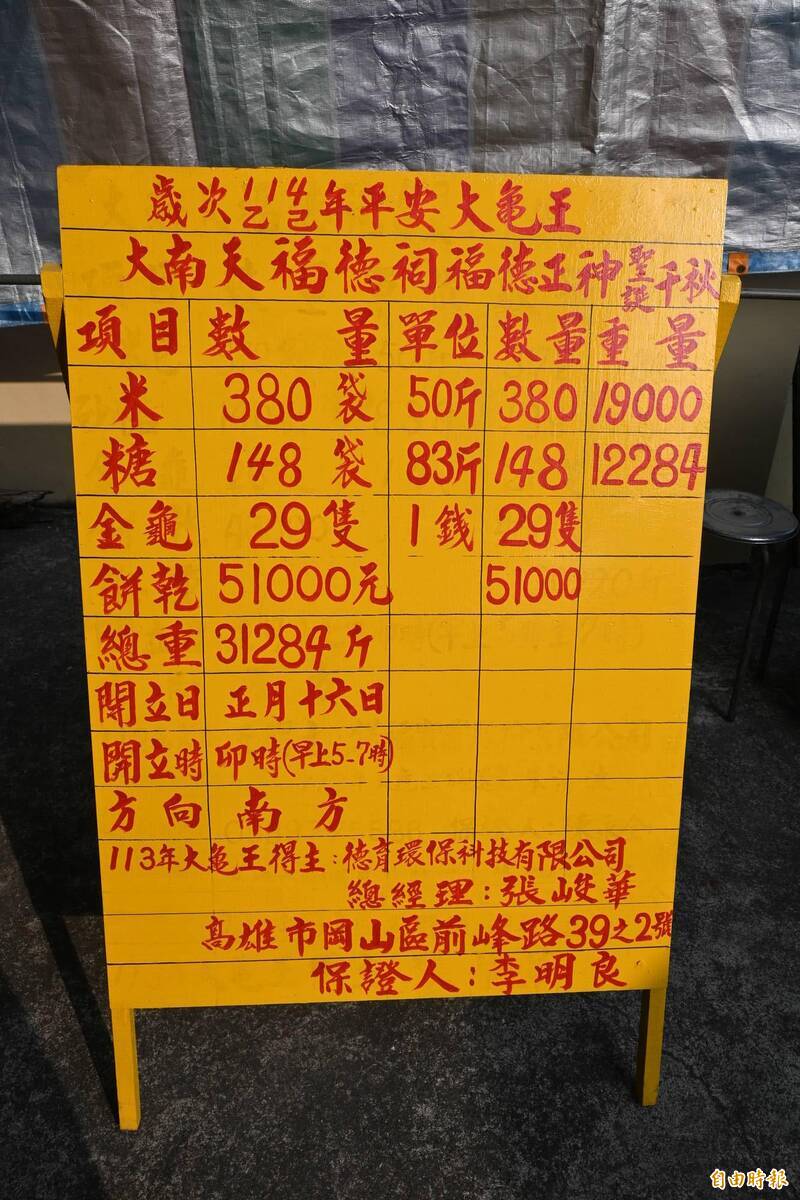 歲次114乙巳年平安大龜王
大南天福德祠福德正神聖誕千秋
項目 數量 單位 數量 重量
米 380袋 50斤 380 19000
糖 148袋 83斤 148 12284
金龜 29隻 1錢 29隻
餅乾 51000元 51000
總重 31284斤
開立日 正月十六日
開立時 卯時(早上5-7時)
方向 南方
113年大龜王得主:德育環保科技有限公司
總經理:張峻華
高雄市岡山區前峰路39之2號
保證人:李明良
自由時報